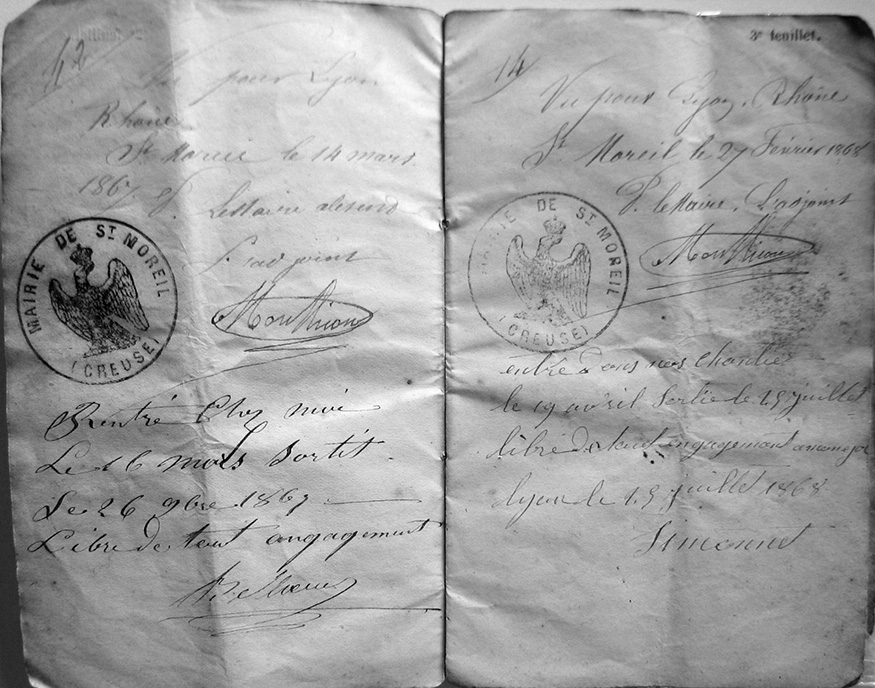 12
Vu pour Lyon
Rhône
St Moreil le 14 mars
1867 P. Le Maire absent
L'adjoint
MAIRIE DE ST MOREIL
(CREUSE)
Rentré Chez
Le 16 mois Sortit
Le 26 9bre 1867
Libre de tout angagement
3e feuillet.
14
Vu pour Lyon, Rhône
St Moreil le 27 Février 1868
P. le Maire, L'adjoint
MAIRIE DE ST MOREIL
(CREUSE)
entré dans nos chantier
le 19 avril Sortie le 15 juillet
libre de tout engagement
lyon le 15 juillet 1868
Simonnet